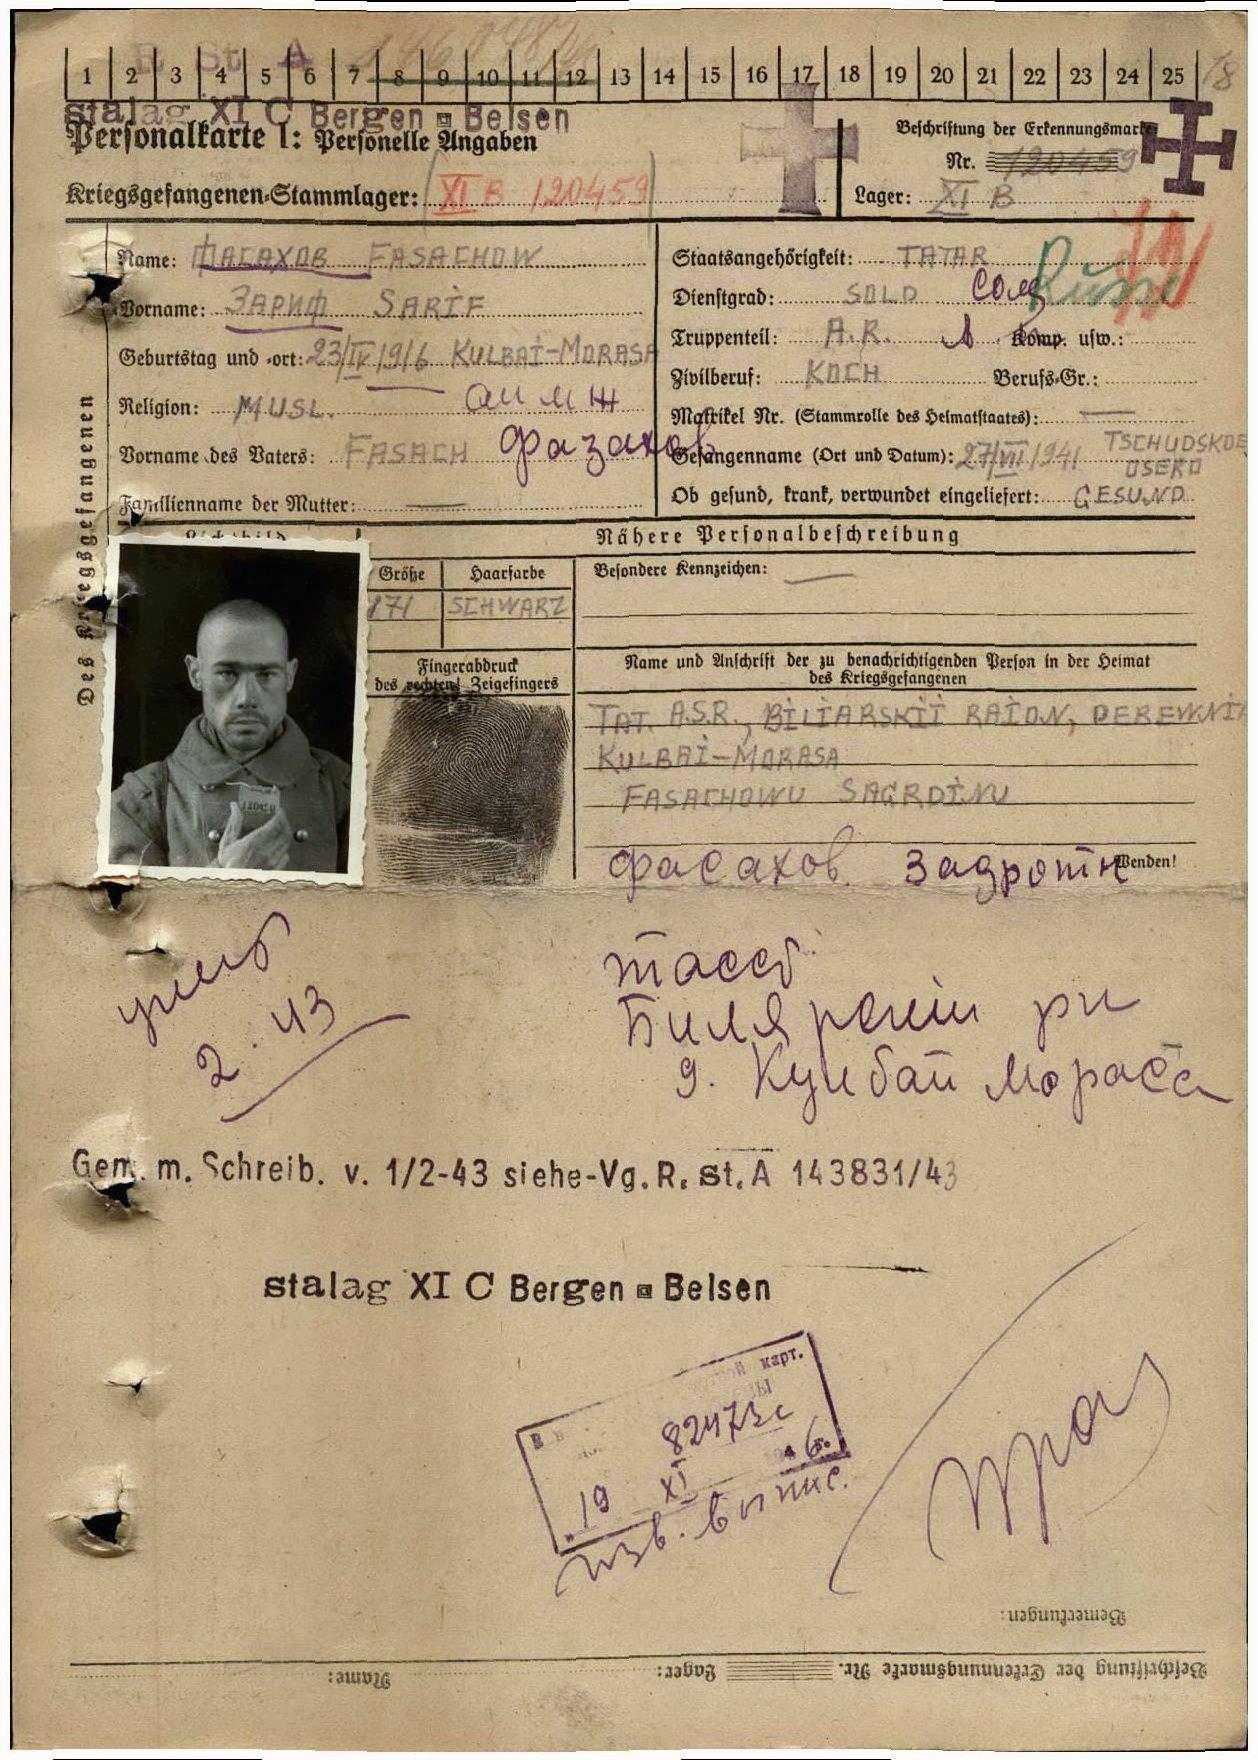 R. St. A
1 2 3 4 5 6 7 8 9 10 11 12 13 14 15 16 17 18 19 20 21 22 23 24 25
stalag XI C Bergen-Belsen
Personalkarte I: Personelle Angaben
Beschriftung der Erkennungsmarke
Nr. 120459
Kriegsgefangenen-Stammlager: XI B 120459
Lager: XI B
Des Kriegsgefangenen
Name: Фасахов FASACHOW
Vorname: Зариф SARIF
Geburtstag und -ort: 23/IV 1916 KULBAI-MORASA
Religion: MUSL.
Vorname des Vaters: FASACH Фазахов
Familienname der Mutter: —
Staatsangehörigkeit: TATAR Russe
Dienstgrad: SOLD Солд
Truppenteil: A.R. Komp. usw.:
Zivilberuf: KOCH Berufs-Gr.:
Matrikel Nr. (Stammrolle des Heimatstaates): —
Gefangenname (Ort und Datum): 27/VII/1941 TSCHUDSKOE
OSERO
Ob gesund, krank, verwundet eingeliefert: GESUND
Lichtbild
Nähere Personalbeschreibung
Größe Haarfarbe
171 SCHWARZ
Besondere Kennzeichen: —
Fingerabdruck
des rechten! Zeigefingers
Name und Anschrift der zu benachrichtigenden Person in der Heimat
des Kriegsgefangenen
TAT. A.S.R., BILIARSKII RAION, DEREWNIA
KULBAI-MORASA
FASACHOWU SAGRDINU
Фасахов
Wenden!
2.43
д. Кулбай Мораса
Gem. m. Schreib. v. 1/2-43 siehe-Vg. R. st. A 143831/43
stalag XI C Bergen-Belsen
карт.
82473с
19 XI 46г.
изв. выпис.
Bemerkungen:
Beschriftung der Erkennungsmarke Nr. Lager: Name: